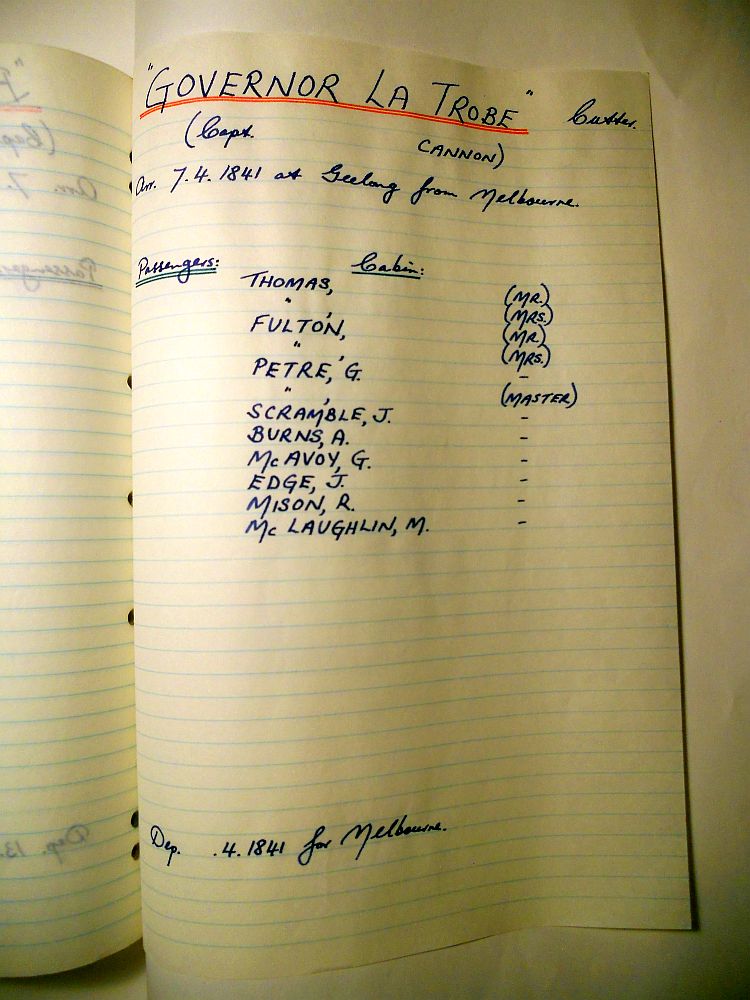 "GOVERNOR LA TROBE" Cutter.
(Capt. CANNON)
Arr. 7.4.1841 at Geelong from Melbourne.
Passengers: Cabin:
THOMAS, (MR.)
" , (MRS.)
FULTON, (MR.)
" , (MRS.)
PETRE, G. -
" , (MASTER)
SCRAMBLE, J. -
BURNS, A. -
McAVOY, G. -
EDGE, J. -
MISON, R. -
McLAUGHLIN, M. -
Dep. .4.1841 for Melbourne.